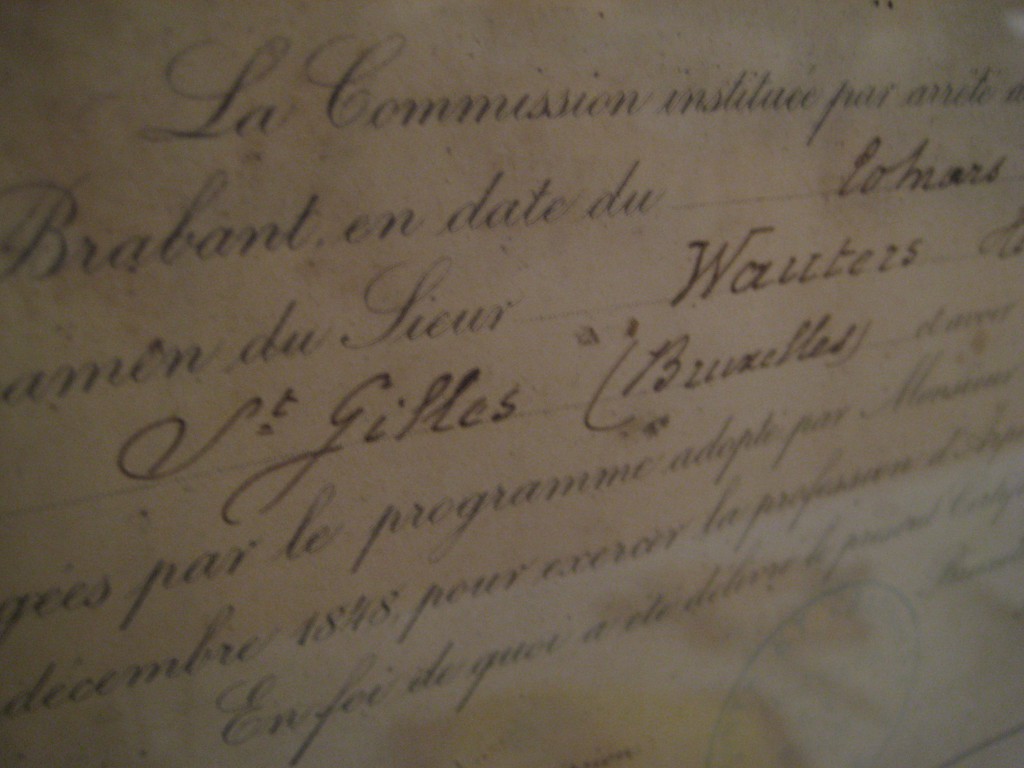 La Commission instituée par arrêté
Brabant, en date du 20 mars
amen du Sieur Wauters
St Gilles (Bruxelles) d'avoir
gées par le programme adopté par Monsieur
décembre 1848, pour exercer la profession
En foi de quoi a été délivré le présent